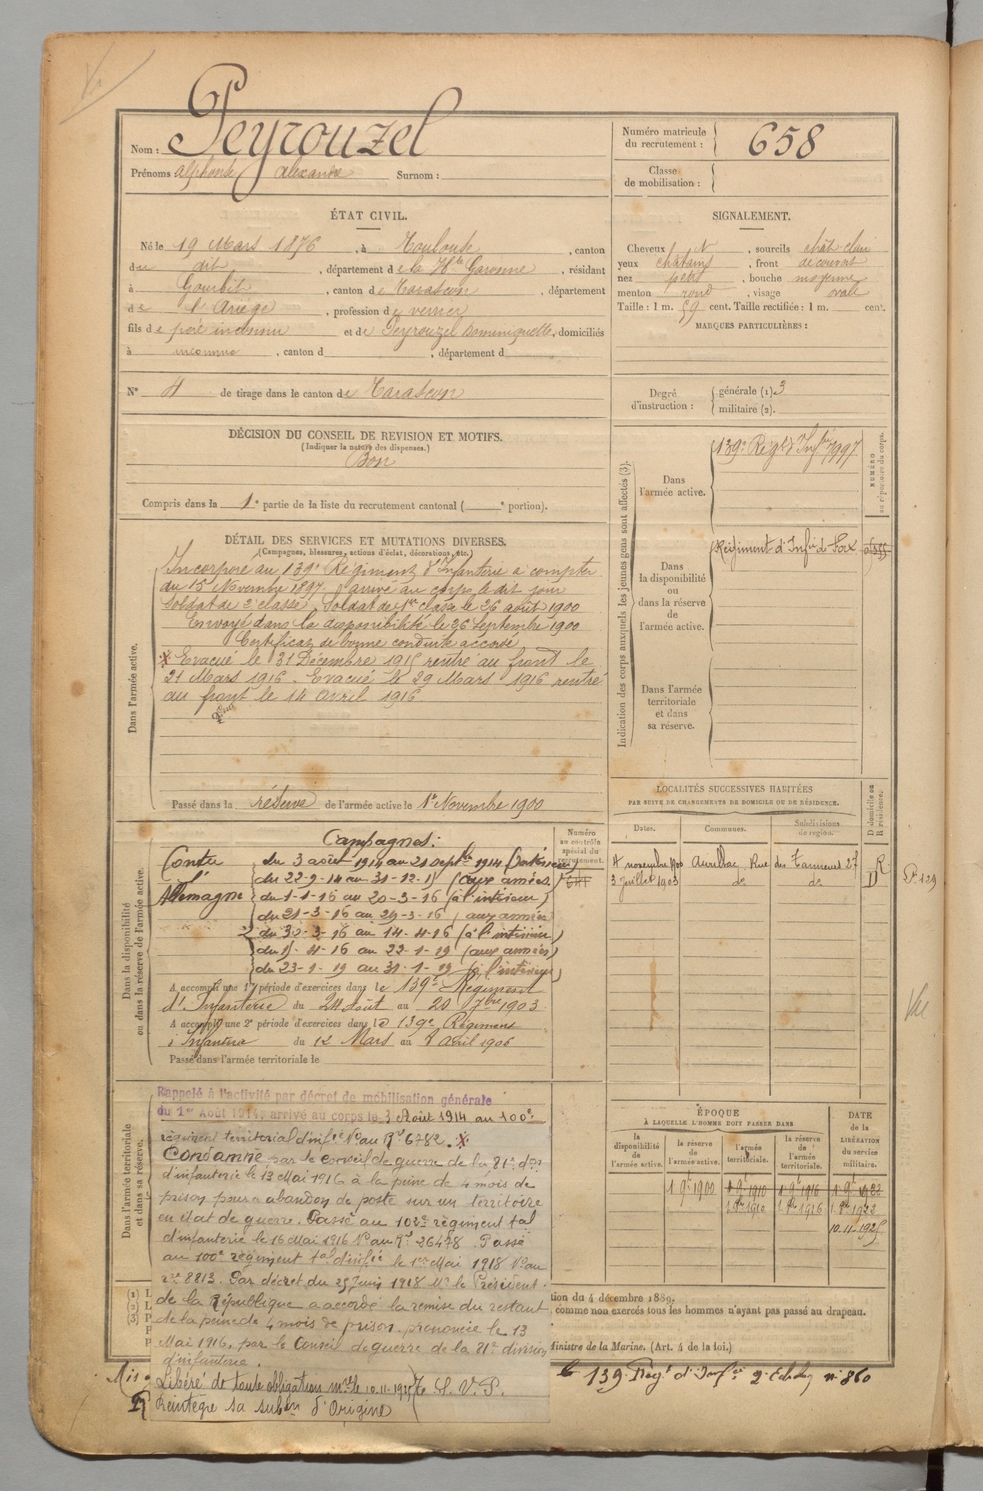 Vu
Nom : Peyrouzel
Prénoms Alphonse Alexandre Surnom :
Numéro matricule du recrutement : 658
Classe de mobilisation :
ÉTAT CIVIL.
Né le 19 Mars 1876, à Toulouse, canton
du dit, département de la Hte Garonne, résidant
à Gourbit, canton de Tarascon, département
de l'Ariège, profession de verrier
fils de père inconnu et de Peyrouzel Dominiquette, domiciliés
à inconnu, canton d, département d
N° 4 de tirage dans le canton de Tarascon
SIGNALEMENT.
Cheveux N, sourcils chât clair
yeux chatains, front découvert
nez gros, bouche moyenne
menton rond, visage ovale
Taille : 1 m. 59 cent. Taille rectifiée : 1 m. cent.
MARQUES PARTICULIÈRES :
Degré d'instruction : générale (1) 3
militaire (2).
DÉCISION DU CONSEIL DE REVISION ET MOTIFS.
(Indiquer la nature des dispenses.)
Bon
Compris dans la 1e partie de la liste du recrutement cantonal ( e portion).
DÉTAIL DES SERVICES ET MUTATIONS DIVERSES.
(Campagnes, blessures, actions d'éclat, décorations, etc.)
Dans l'armée active.
Incorporé au 139e Régiment d'Infanterie à compter
du 15 Novembre 1897, arrivé au corps le dit jour
Soldat de 2e classe. Soldat de 1re classe le 26 août 1900
Envoyé dans la disponibilité le 26 Septembre 1900
Certificat de bonne conduite accordé
X Evacué le 31 Décembre 1915 rentré au front le
21 Mars 1916. Evacué le 29 Mars 1916 rentré
au front le 14 avril 1916
Passé dans la réserve de l'armée active le 1er Novembre 1900
Indication des corps auxquels les jeunes gens sont affectés (3).
NUMÉRO au répertoire du corps.
Dans l'armée active.
139e Régt d'Infrie 7997
Dans la disponibilité ou dans la réserve de l'armée active.
Régiment d'Infie de Foix
Dans l'armée territoriale et dans sa réserve.
LOCALITÉS SUCCESSIVES HABITÉES
PAR SUITE DE CHANGEMENTS DE DOMICILE OU DE RÉSIDENCE.
D domicile ou R résidence.
Dates. Communes. Subdivisions de région.
4 novembre 1900 Aurillac, Rue du Tanneurs 27 R
3 Juillet 1903 do do D
P 139
Vu
Dans la disponibilité ou dans la réserve de l'armée active.
Campagnes :
Numéro au contrôle spécial du recrutement.
Contre du 3 août 1914 au 21 septbre 1914 (Intérieur)
l' du 22-9-14 au 31-12-15 (aux armées)
Allemagne du 1-1-16 au 20-3-16 (à l'intérieur)
du 21-3-16 au 29-3-16 (aux armées)
du 30-3-16 au 14-4-16 (à l'intérieur)
du 15-4-16 au 22-1-19 (aux armées)
du 23-1-19 au 31-1-19 (à l'intérieur)
A accompli une 1re période d'exercices dans le 139e Régiment
d'Infanterie du 24 août au 20 7bre 1903
A accompli une 2e période d'exercices dans le 139e Régiment
d'Infanterie du 12 Mars au 8 avril 1906
Passé dans l'armée territoriale le
Dans l'armée territoriale et dans sa réserve.
Rappelé à l'activité par décret de mobilisation générale
du 1er Août 1914, arrivé au corps le 3 Août 1914 au 100e
régiment territorial d'infie No au Rl 6782. X
Condamné par le conseil de guerre de la 81e don
d'infanterie le 13 Mai 1916 à la peine de 4 mois de
prison pour abandon de poste sur un territoire
en état de guerre. Passé au 102e régiment tal
d'infanterie le 16 Mai 1916 No au Rl 26478. Passé
au 100e régiment tal d'infie le 1er Mai 1918 No au
8813. Par décret du 25 Juin 1918 Mr le Président
de la République a accordé la remise du restant
de la peine de 4 mois de prison, prononcée le 13
Mai 1916, par le Conseil de guerre de la 81e division
d'infanterie.
Libéré de toute obligation mre le 10.11.1925
Réintègre sa subon d'Origine
S. V. P.
ÉPOQUE
À LAQUELLE L'HOMME DOIT PASSER DANS
DATE DE LA LIBÉRATION du service militaire.
la disponibilité de l'armée active. la réserve de l'armée active. l'armée territoriale. la réserve de l'armée territoriale.
1 9bre 1900 1 9bre 1910 1 9bre 1916 1 9bre 1922
1 8bre 1910 1 8bre 1916 1 8bre 1922
10.11.1925
(1) L
(2) L
(3) P
tion du 4 décembre 1889.
comme non exercés tous les hommes n'ayant pas passé au drapeau.
Ministre de la Marine. (Art. 4 de la loi.)
le 139 Régt d'Infie 2e n° 860